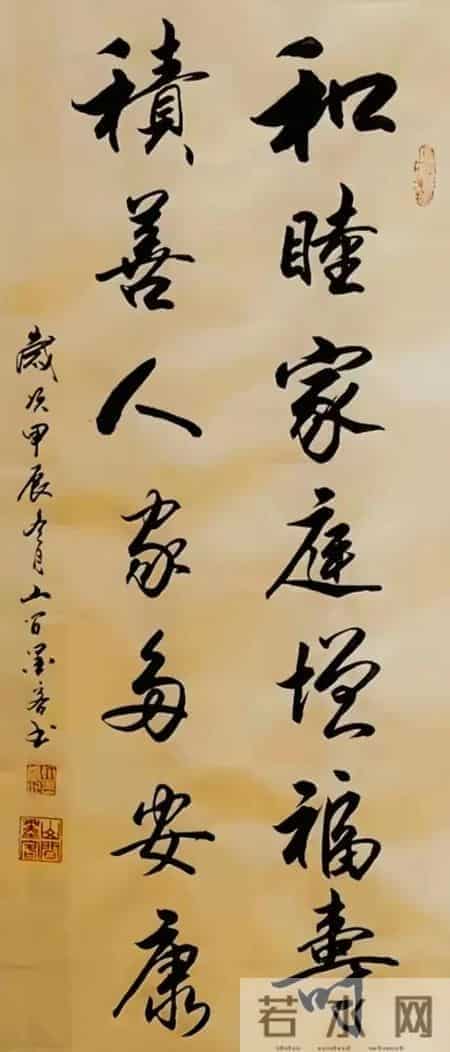 和睦家庭增福壽
積善人家多安康
歲次甲辰冬月山間墨客书
若水网